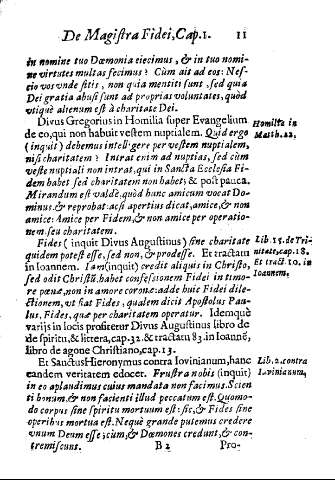 De Magistra Fidei, Cap. 1. 11
in nomine tuo Dæmonia eiecimus, & in tuo nomi-
ne virtutes multas fecimus? Cùm ait ad eos: Nes-
cio vos vnde sitis, non quia mentiti sunt, sed quia
Dei gratia abusi sunt ad proprias voluntates, quòd
vtiquè alienum est à charitate Dei.
Divus Gregorius in Homilia super Evangelium
de eo, qui non habuit vestem nuptialem. Quid ergo
(inquit) debemus intelligere per vestem nuptialem,
nisi charitatem? Intrat enim ad nuptias, sed cùm
veste nuptiali non intrat, qui in Sancta Ecclesia Fi-
dem habet sed charitatem non habet; & post pauca.
Mirandum est valdè, quòd hunc amicum vocat Do-
minus & reprobat: acsi apertius dicat, amice, & non
amice: Amice per Fidem, & non amice per operatio-
nem, seu charitatem.
Homilia in
Matth. 22.
Fides (inquit Divus Augustinus) sine charitate
quidem potest esse, sed non, & prodesse. Et tractatu
in Ioannem. Iam (inquit) credit aliquis in Christo,
sed odit Christũ, habet confessionem Fidei in timo-
re pœnæ, non in amore coronæ: adde huic Fidei dile-
ctionem, vt fiat Fides, qualem dicit Apostolus Pau-
lus. Fides, quæ per charitatem operatur. Idemquè
varijs in locis profitetur Divus Augustinus libro de
de spiritu, & littera, cap. 32. & tractatu 83. in Ioannẽ,
libro de agone Christiano, cap. 13.
Lib. 15. de Tri-
nitate, cap. 18.
Et tract. 10. in
Ioannem,
Et Sanctus Hieronymus contra Iovinianum, hanc
eandem veritatem edocet. Frustra nobis (inquit)
in eo aplaudimus cuius mandata non facimus. Scien
ti bonum, & non facienti illud peccatum est. Quomo-
do corpus sine spiritu mortuum est: sic, & Fides sine
operibus mortua est. Nequè grande putemus credere
vnum Deum esse; cùm, & Dæmones credunt, & con-
tremiscunt.
Lib. 2. contra
Iovinianum,
B 2 Pro-